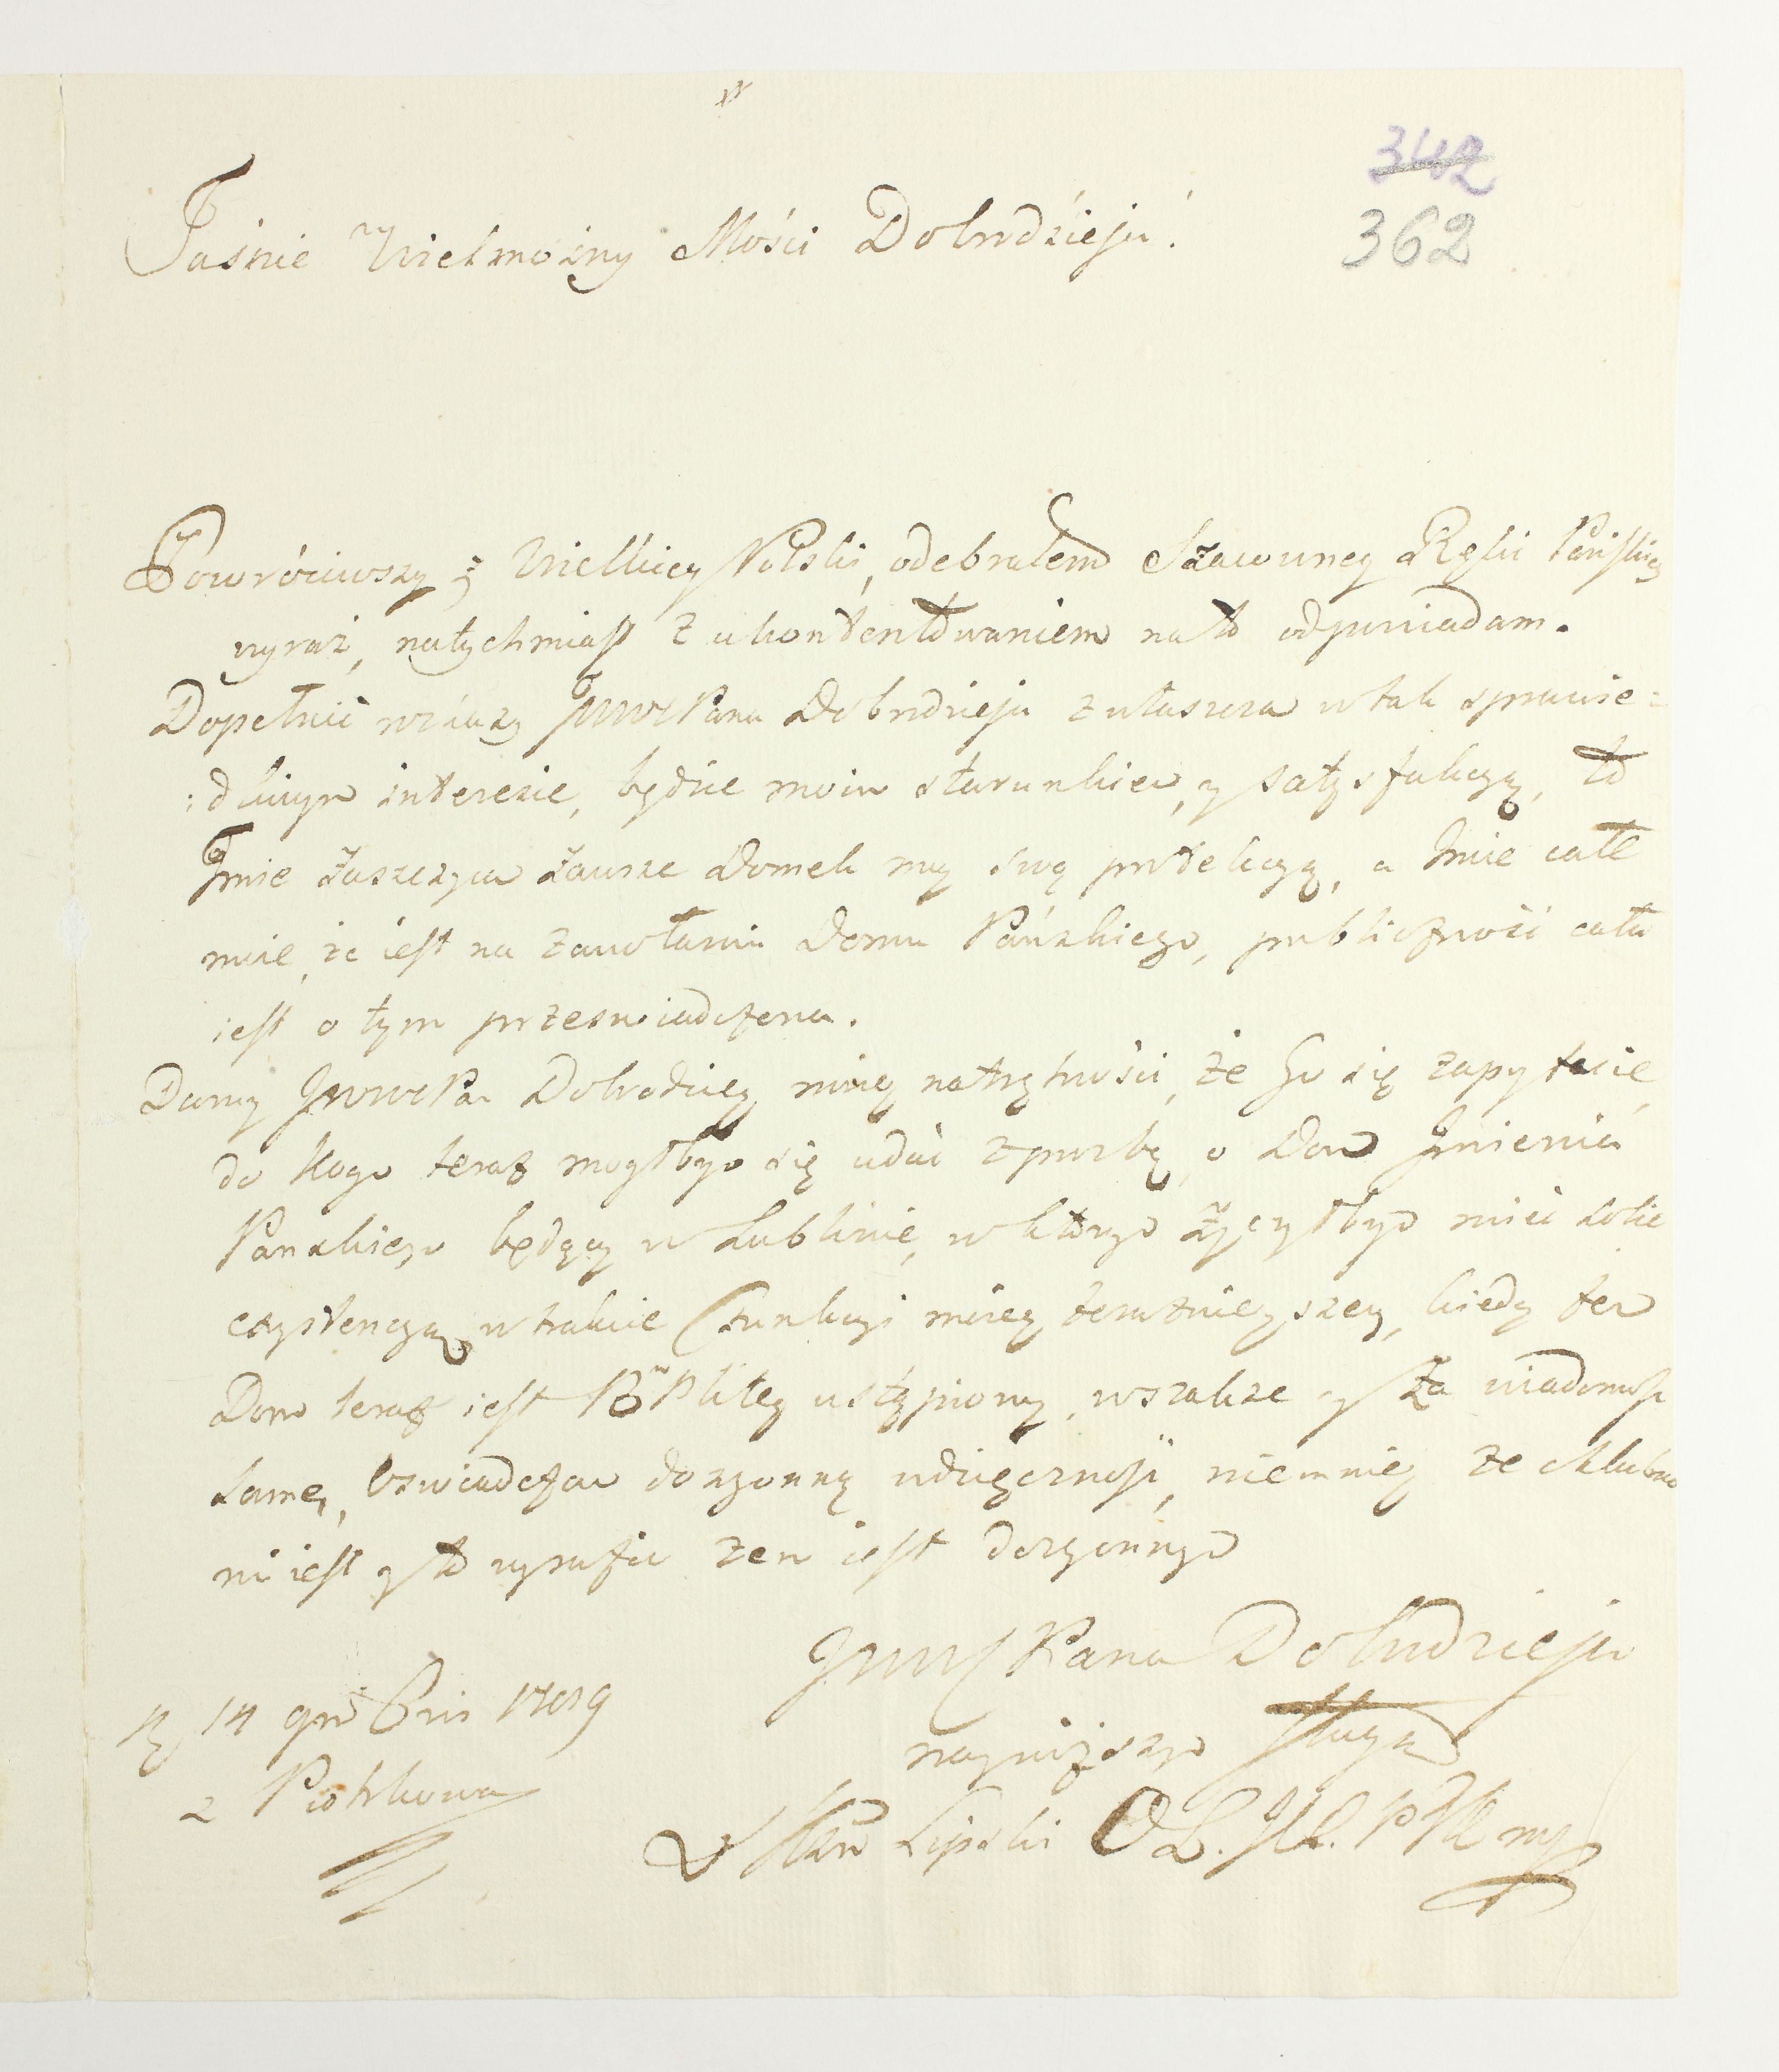 342
362
Jaśnie Wielmożny Mości Dobrodzieju!
Powróciwszy z Wielkiey Polski, odebrałem Szacowney Ręki Pańskiey
wyraz, natychmiast z ukontentowaniem na to odpowiadam.
Dopełnić wrazy JWWPana Dobrodzieja zwłaszcza w tak sprawie=
:dliwym interesie, będzie moim starunkiem, y satysfakcyą, to
Imie zaszczyca zawsze Domek moy swą protekcyą, a Imie całe
moie, że iest na zawołaniu Domu Pańskiego, publiczność cała
iest o tym przeswiadczona.
Daruy JWWPan Dobrodziey moiey natrętności, że Go się zapytuię,
do kogo teraz mogłbym się udać z prozbą, o Dom Imienia
Panskiego będący w Lublinie, w ktorym życzyłbym mieć sobie
exystencyą, w trakcie Funkcyi moiey teraznieyszey, kiedy ten
Dom teraz iest Plitey ustąpiony, wszakże y za wiadomość
samę, Oswiadczam dozgonną wdzięczność, niemniey ze chlubno
mi iest y to wyrazić żem iest dozgonnym
JWW Pana Dobrodzieja
nayniższym sługą
Lipski
14 1789
z Piotrkowa